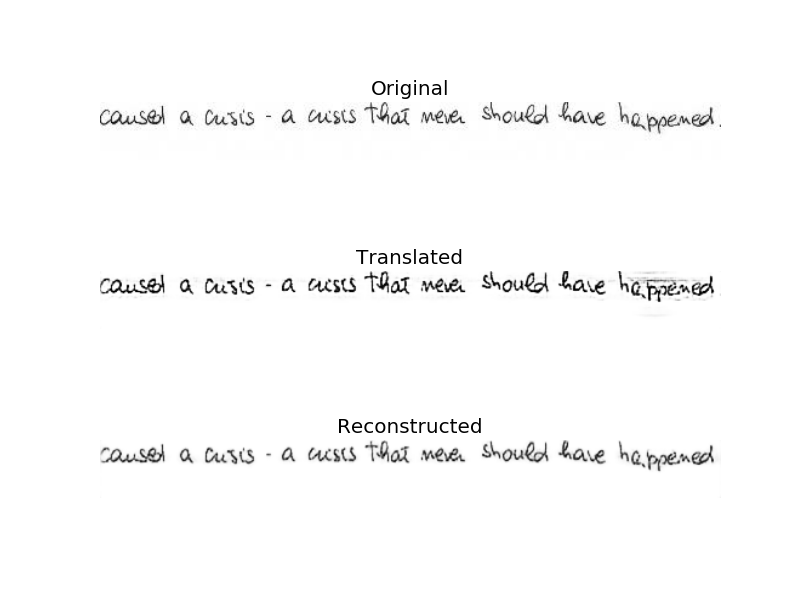 Original
caused a crisis - a crisis that never should have happened.
Translated
caused a crisis - a crisis that never should have happened
Reconstructed
caused a crisis - a crisis that never should have happened